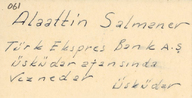 061
Alaattin Salmaner
Türk Ekspres Bank A.Ş
Üsküdar ajansında
Veznedar
Üsküdar